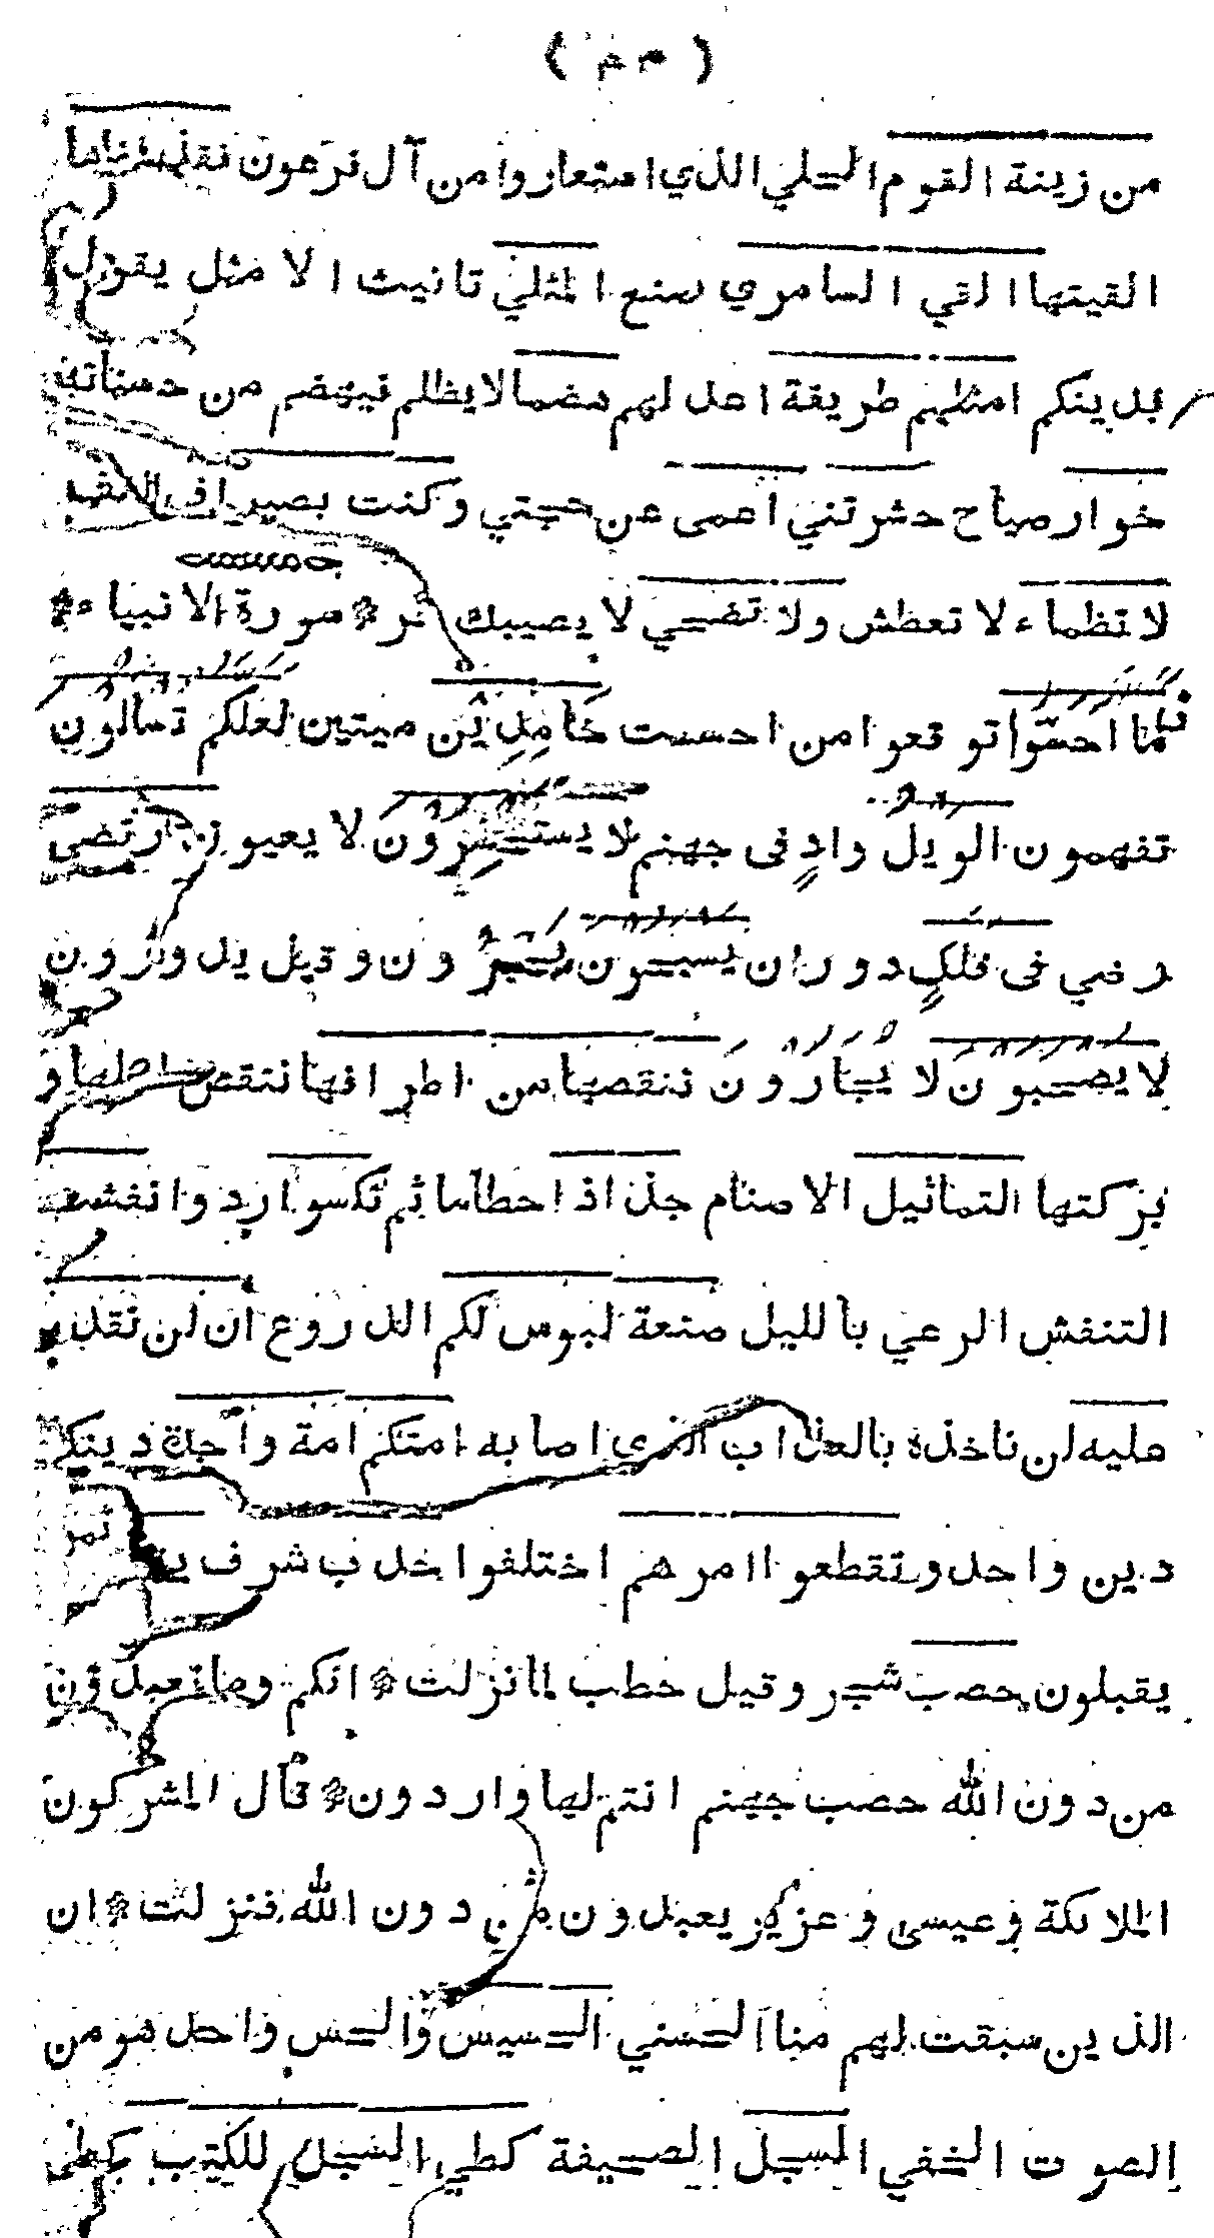 من زينة القوم الحلي الذي استعاروا من آل فرعون فقذفناها
القيتها القي السامري صنع المثلي تانيث الا مثل يقول
بدينكم امثلهم طريقة اعدلهم هضما لا يظلم فيهضم من حسناته
خوار صياح حشرتني اعمى عن حجتي وكنت بصيرا في
لا تظماء لا تعطش ولا تضحي لا يصيبك حر * سورة الانبياء *
فلما احسوا توقعوا من احسست خامدين ميتين لعلكم تسالون
تفهمون الويل واد في جهنم لا يستحسرون لا يعيون ارتضي
رضي في فلك دوران يسبحون يجرون وقيل يدورون
لا يصحبون لا يجارون ننقصها من اطرافها ننقص اهلها و
بركتها التماثيل الاصنام جذاذا حطاما ثم نكسوا ردوا نفشت
التنفش الرعي بالليل صنعة لبوس لكم الدروع ان لن نقدر
عليه لن ناخذه بالعذاب الذي اصابه امتكم امة واحدة دينكم
دين واحد وتقطعوا امرهم اختلفوا حدب شرف
يقبلون حصب شجر وقيل حطب لما نزلت * انكم وما تعبدون
من دون الله حصب جهنم انتم لها واردون * قال المشركون
الملائكة وعيسى وعزير يعبدون من دون الله فنزلت * ان
الذين سبقت لهم منا الحسني الحسيس والحس واحد هو من
الصوت الخفي السجل الصحيفة كطي السجل للكتب كطي